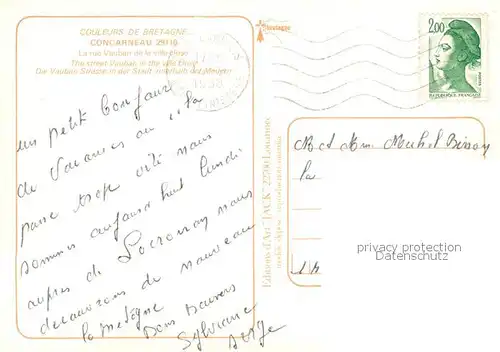 COULEURS DE BRETAGNE...
CONCARNEAU 29110
La rue Vauban de la ville close
The street Vauban in the
Die Vauban Strasse in der Stadt innerhalb der Mauern
Bretagne
2,00
REPUBLIQUE FRANÇAISE
1988
un petit bonjour
de vacances ou "ça
passe trop vite" nous
sommes aujourd'hui lundi
auprès de Locronan nous
découvrons de nouveau
la Bretagne
Bons baisers
Sylviane
Serge
Editions d'Art "JACK" 22700 Louannec
M et Mme Michel Bisson
La
privacy protection
Datenschutz